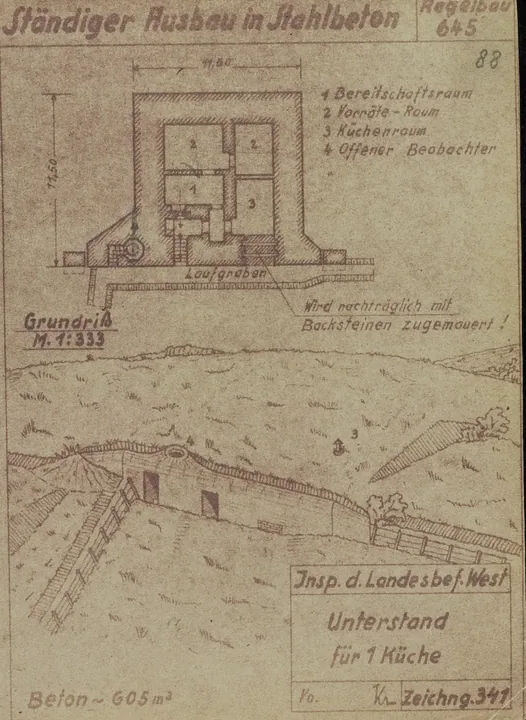 Ständiger Ausbau in Stahlbeton
Regelbau
645
88
11,60
11,50
1 Bereitschaftsraum
2 Vorräte-Raum
3 Küchenraum
4 Offener Beobachter
2
2
1
3
4
Laufgraben
Wird nachträglich mit
Backsteinen zugemauert!
Grundriß
M. 1:333
4
3
Insp. d. Landesbef. West
Unterstand
für 1 Küche
Kr
Zeichng. 341
Beton ~ 605 m³